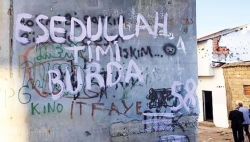 ESEDULLAH,
TİMİ
BURDA
KİNO İTFAYE 58